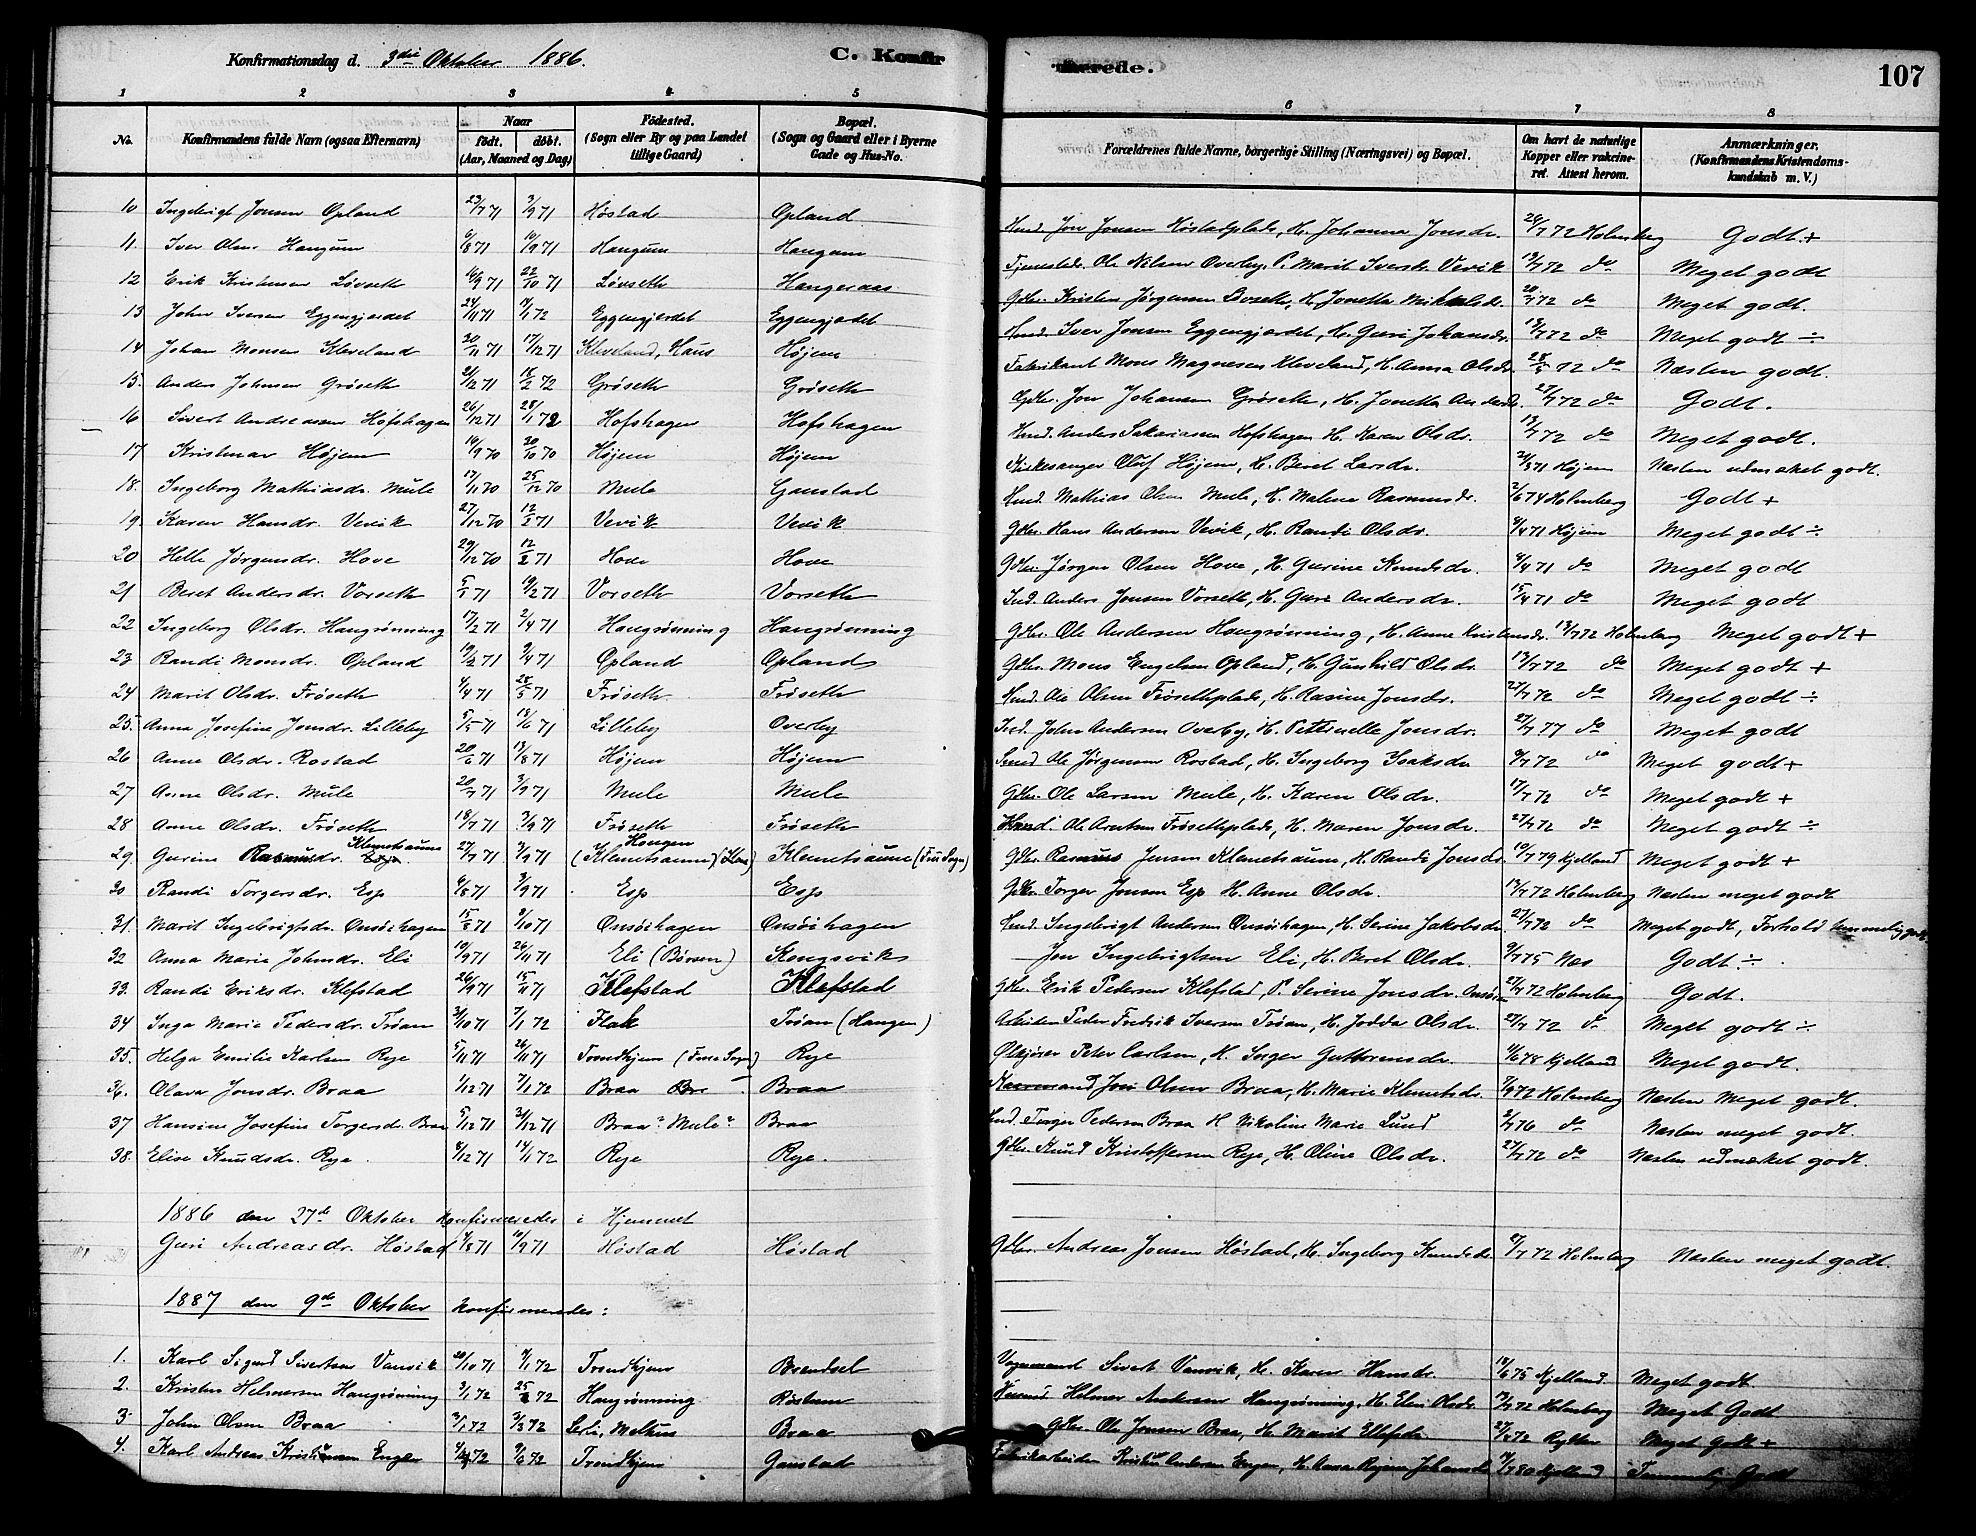 Konfirmationsdag d. 3die Oktober 1886.
C. Konfirmerede.
107
1 2 3 4 5 6 7 8
No.
Konfirmandens fulde Navn (ogsaa Efternavn)
Naar
født. døbt.
(Aar, Maaned og Dag)
Fødested.
(Sogn eller By og paa Landet
tillige Gaard)
Bopæl.
(Sogn og Gaard eller i Byerne
Gade og Hus-No.
Forældrenes fulde Navne, borgerlige Stilling (Næringsvei) og Bopæl.
Om havt de naturlige
Kopper eller vakcine-
ret. Attest herom.
Anmærkninger.
(Konfirmandens Kristendoms-
kundskab m. V.)
10 Ingebrigt Jonsen Opland 23/7 71 3/9 71 Høstad Opland Hmd. Jon Jonsen Høstadplads, H. Johanna Jonsdr. 7 72 Holmberg Godt +
11. Iver Olsen Haugum 6/8 71 10/9 71 Haugum Haugum Ole Nilsen Overby, P. Marit Iversdr. Vevik 7 72 do Meget godt
12 Erik Kristensen Løvseth 9 71 22/10 71 Løvseth Haugeraas Gdbr. Kristen Jørgensen Løvseth, H. Jonetta Mikkelsdr. 7 72 do Meget godt.
13 John Iversen Eggengjerdet 24/11 71 1 72 Eggengjerdet Eggengjerdet Hmd. Iver Jonsen Eggengjerdet, H. Guri Johansdr. 7 72 do Meget godt ÷
14 Johan Monsen Kleveland 20/11 71 17/12 71 Kleveland, Haus Højem Fabrikant Mons Magnesen Kleveland, H. Anna Olsdr. 72 do Næsten godt.
15. Anders Johnsen Grøseth 21/12 71 18/2 72 Grøseth Grøseth Gdbr. Jon Johansen Grøseth, H. Jonetta Andersdr. 27/7 72 do Godt.
16 Sivert Andreassen Hofshagen 26/12 71 28/1 72 Hofshagen Hofshagen Hmd. Anders Sakariassen Hofshagen H. Karen Olsdr. 7 72 do Meget godt.
17 Kristmar Højem 9 70 10 70 Højem Højem Kirkesanger Oluf Højem, H. Beret Larsdr. 71 Højem Næsten udmærket godt.
18. Ingeborg Mathiasdr. Mule 17/11 70 25/12 70 Mule Gaustad Hmd. Mathias Olsen Mule, H. Malena Rasmusdr. 2/6 74 Holmberg Godt +
19. Karen Hansdr. Vevik 27/12 70 12/2 71 Vevik Vevik Gdbr. Hans Andersen Vevik, H. Randi Olsdr. 4 71 Højem Meget godt ÷
20 Helle Jørgensdr. Hove 29/12 70 12/2 71 Hove Hove Gdbr. Jørgen Olsen Hove, H. Gurine Knudsdr. 4 71 do Meget godt
21 Beret Andersdr. Vorseth 71 19/2 71 Vorseth Vorseth Ind. Anders Jonsen Vorseth, H. Guri Andersdr. 15/4 71 do Meget godt
22 Ingeborg Olsdr. Haugrønning 17/2 71 2/4 71 Haugrønning Haugrønning Gdbr. Ole Andersen Haugrønning, H. Anne Kristensdr. 7 72 Holmberg Meget godt +
23 Randi Monsdr. Opland 19/2 71 9/4 71 Opland Opland Gdbr. Mons Engelsen Opland, H. Gunhild Olsdr. 7 72 do Meget godt +
24 Marit Olsdr. Frøseth 4/4 71 28/5 71 Frøseth Frøseth Hmd. Ole Olsen Frøsethplads, H. Rasine Jonsdr. 27/7 72 do Meget godt ÷
25. Anna Josefine Jonsdr. Lilleby 5/5 71 18/6 71 Lilleby Overby Ind. John Andersen Overby, H. Pettrnelle Jonsdr. 27/7 77 do Meget godt
26 Anne Olsdr. Rostad 20/6 71 13/8 71 Højem Højem Smed Ole Jørgensen Rostad, H. Ingeborg Isaksdr 7 72 do Meget godt +
27 Anne Olsdr. Mule 20/7 71 3/9 71 Mule Mule Gdbr. Ole Larsen Mule, H. Karen Olsdr. 17/7 72 do Meget godt +
28 Anne Olsdr. Frøseth 18/7 71 3/9 71 Frøseth Frøseth Hmd. Ole Arntsen Frøsethplads, H. Maren Jonsdr. 27/7 72 do Meget godt ÷
29. Gurine Rasmusdr. Klemetsaune 27/7 71 3/9 71 Haugen (Klemetsaune) Klemetsaune (Fru Sogn) Gdbr. Rasmus Jensen Klemetsaune, H. Randi Jonsdr. 10/7 79 Kjelland Meget godt +
30 Randi Torgersdr. Esp 6/8 71 3/9 71 Esp Esp Gdbr. Torger Jonsen Esp H. Anne Olsdr. 7 72 Holmberg Næsten meget godt
31. Marit Ingebrigtsdr. Onsøihagen 15/8 71 10 71 Onsøihagen Onsøihagen Hmd. Ingebrigt Andersen Onsøihagen, H. Serine Jakobsdr. 27/7 72 do Meget godt, Forhold temmelig godt
32 Anna Marie Johnsdr. Eli 19/9 71 26/11 71 Eli (Børsen) Kongsvik Jon Ingebrigtsen Eli, H. Beret Olsdr. 9/7 75 Næs Godt ÷
33. Randi Eriksdr. Klefstad 26/9 71 15/11 71 Klefstad Klefstad Gdbr. Erik Pedersen Klefstad, P. Serine Jonsdr. Onsøien 27/7 72 Holmberg Godt.
34 Inga Marie Pedersdr. Trøan 31/10 71 7/1 72 Flak Trøan (Haugen) Peder Fredrik Iversen Trøan, H. Jodda Olsdr. 27/7 72 do Meget godt ÷
35. Helga Emilie Karlsen Rye 5/11 71 26/11 71 Trondhjem (Frue Sogn) Rye Peter Carlsen, H. Inger Guttormsdr. 6 78 Kjelland Meget godt.
36. Olava Jonsdr. Braa 1/12 71 7/1 72 Braa Braa Jon Olsen Braa, H. Marie Klemetsdr. 9 72 Holmberg Næsten Meget godt.
37 Hansine Josefine Torgersdr. Braa 5/12 71 31/12 71 Braa "Mule" Braa Hmd. Torger Pedersen Braa H Nikoline Marie Lund 2/7 76 do Næsten meget godt.
38. Elise Knudsdr. Rye 8/12 71 14/1 72 Rye Rye. Gdbr. Knud Kristoffersen Rye, H. Oline Olsdr. 27/7 72 do Næsten udmærket godt.
1886 den 27de Oktober konfirmeredes i Hjemmet
Guri Andreasdr. Høstad 4/8 71 10/9 71 Høstad Høstad Gdbr. Andreas Jonsen Høstad, H. Ingeborg Knudsdr. 7 72 Holmberg Næsten meget godt.
1887 den 9de Oktober konfirmeredes:
1. Karl Sigurd Sivertsen Vanvik 10 71 1 72 Trondhjem Brendsel Vognmand Sivert Vanvik, H. Karen Hansdr. 6 75 Kjelland Meget godt.
2. Kristen Helmersen Haugrønning 3/1 72 25 72 Haugrønning Helmer Andersen Haugrønning, H. Elen Olsdr. 7 72 Holmberg Meget Godt
3. John Olsen Braa 3/1 72 72 Melhus Braa Gdbr. Ole Jonsen Braa, H. Marit 27 72 Meget Godt +
4. Karl Andreas Kristiansen Engen 72 72 Trondhjem Gaustad Fabrikarbeider Kristian Andersen Engen, H. Anna Regine Johansdr 7 80 Kjelland Temmelig Godt